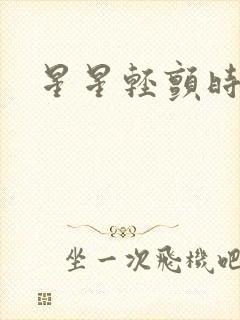 星星輕顫時
坐一次飛機吧